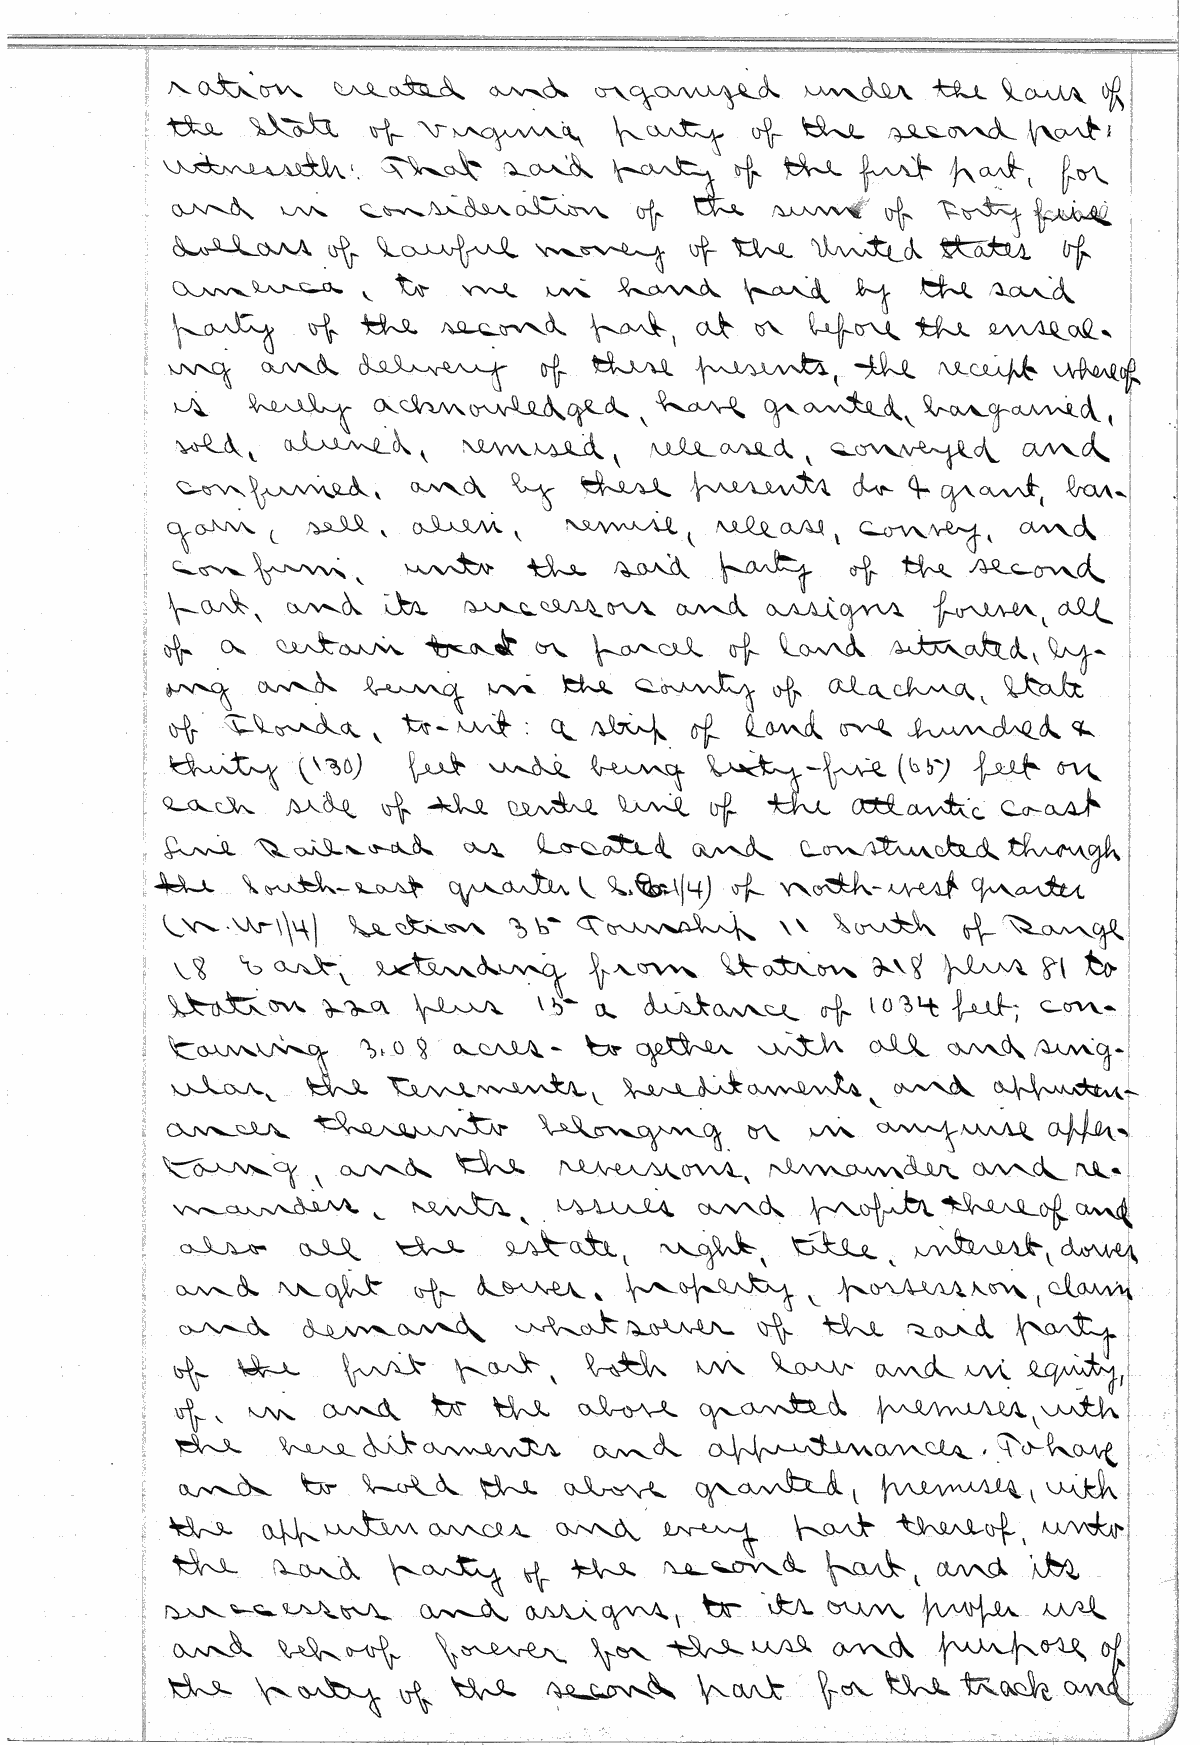 ration created and organized under the laws of
the State of Virginia, party of the second part:
witnesseth: That said party of the first part, for
and in consideration of the sum of Forty five
dollars of lawful money of the United States of
America, to me in hand paid by the said
party of the second part, at or before the enseal-
ing and delivery of these presents, the receipt whereof
is hereby acknowledged, have granted, bargained,
sold, aliened, remised, released, conveyed and
confirmed, and by these presents do & grant, bar-
gain, sell, alien, remise, release, convey, and
confirm, unto the said party of the second
part, and its successors and assigns forever, all
of a certain tract or parcel of land situated, ly-
ing and being in the County of Alachua, State
of Florida, to-wit: A strip of land one hundred &
thirty (130) feet wide being Sixty-five (65) feet on
each side of the centre line of the Atlantic Coast
Line Railroad as located and constructed through
the South-east quarter (S.E.1/4) of north-west quarter
(N.W 1/4) Section 35 Township 11 South of Range
18 East, extending from Station 218 plus 81 to
Station 229 plus 15 a distance of 1034 feet; con-
taining 3.08 acres - together with all and sing-
ular, the tenements, hereditaments, and appurten-
ances thereunto belonging or in anywise apper-
taing, and the reversions, remainder and re-
mainders, rents, issues and profits thereof and
also all the estate, right, title, interest, dower
and right of dower, property, possession, claim
and demand whatsoever of the said party
of the first part, both in law and in equity,
of, in and to the above granted premises, with
the hereditaments and appurtenances. To have
and to hold the above granted, premises, with
the appurtenances and every part thereof, unto
the said party of the second part, and its
successors and assigns, to its own proper use
and behoof forever for the use and purpose of
the party of the second part for the track and